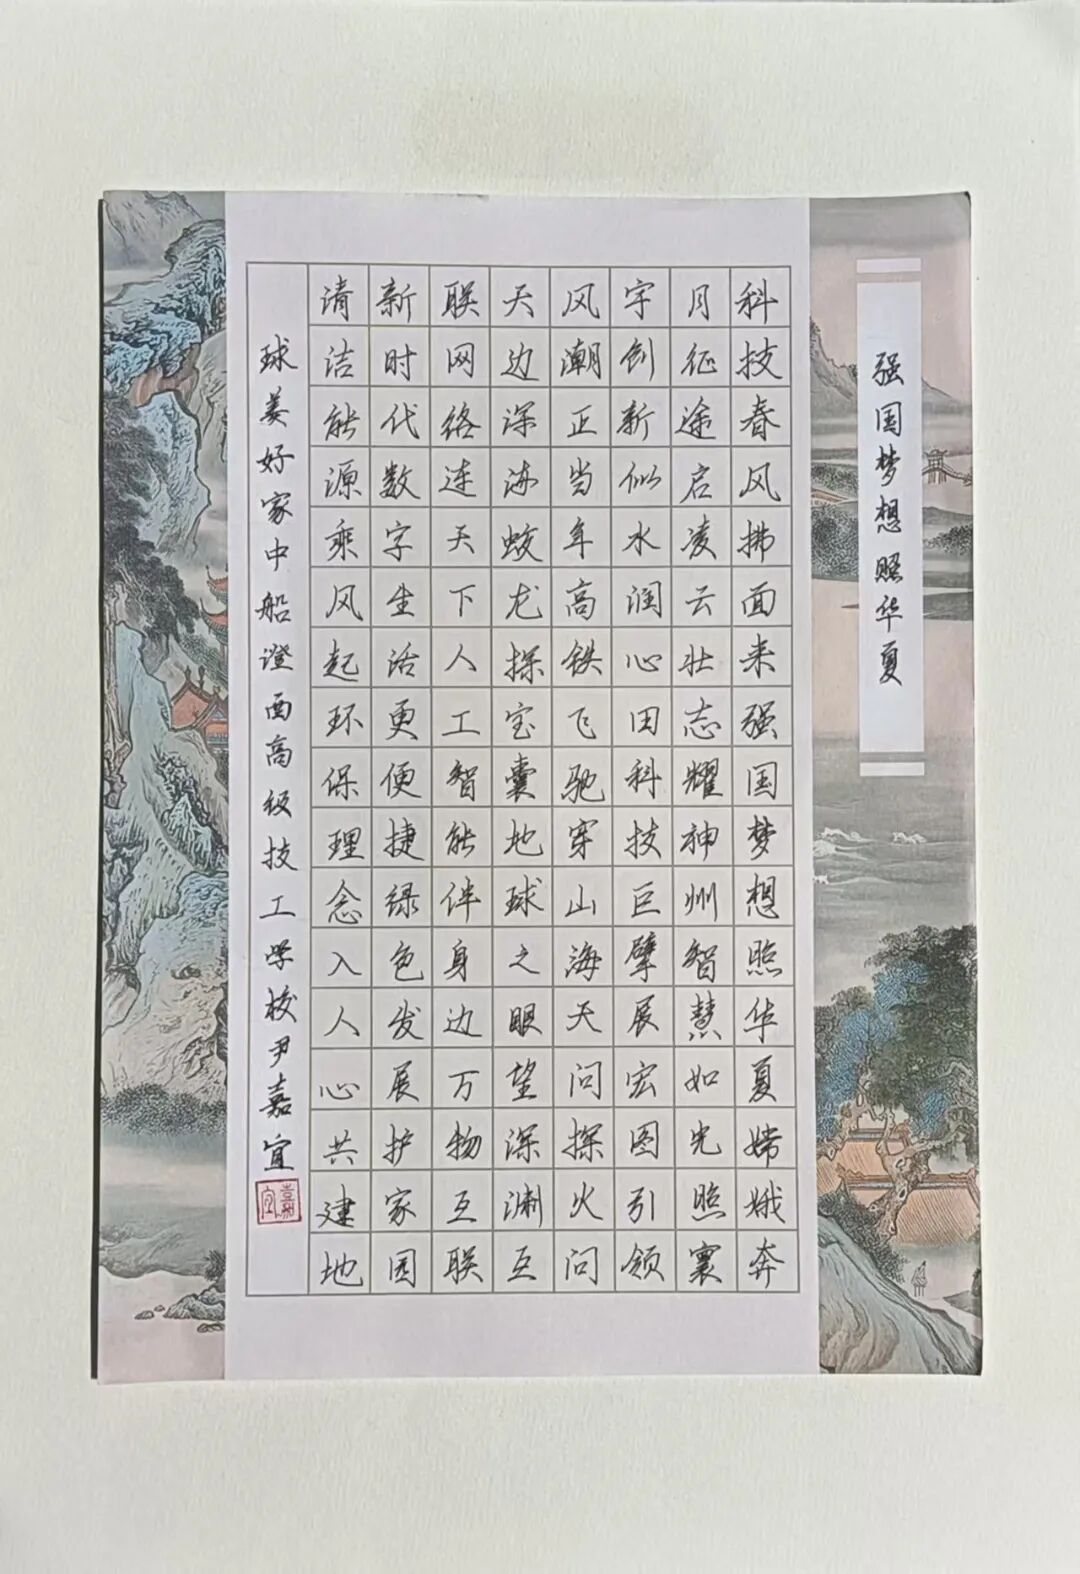 强国梦想照华夏
科技春风拂面来强国梦想照华夏嫦娥奔
月征途启凌云壮志耀神州智慧如光照寰
宇创新似水润心田科技巨擘展宏图引领
风潮正当年高铁飞驰穿山海天问探火问
天边深海蛟龙探宝囊地球之眼望深渊互
联网络连天下人工智能伴身边万物互联
新时代数字生活更便捷绿色发展护家园
清洁能源乘风起环保理念入人心共建地
球美好家中船澄西高级技工学校尹嘉宜
嘉宜